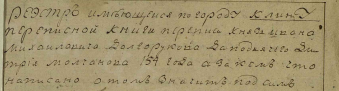 Реэстръ имѣющейся по городу Клину
переписной книги переписи князь ивана
михаиловича Долгорукова даподьячего Дми
трия молчанова 154 года а за кемъ что
написано о томъ значитъ под симъ